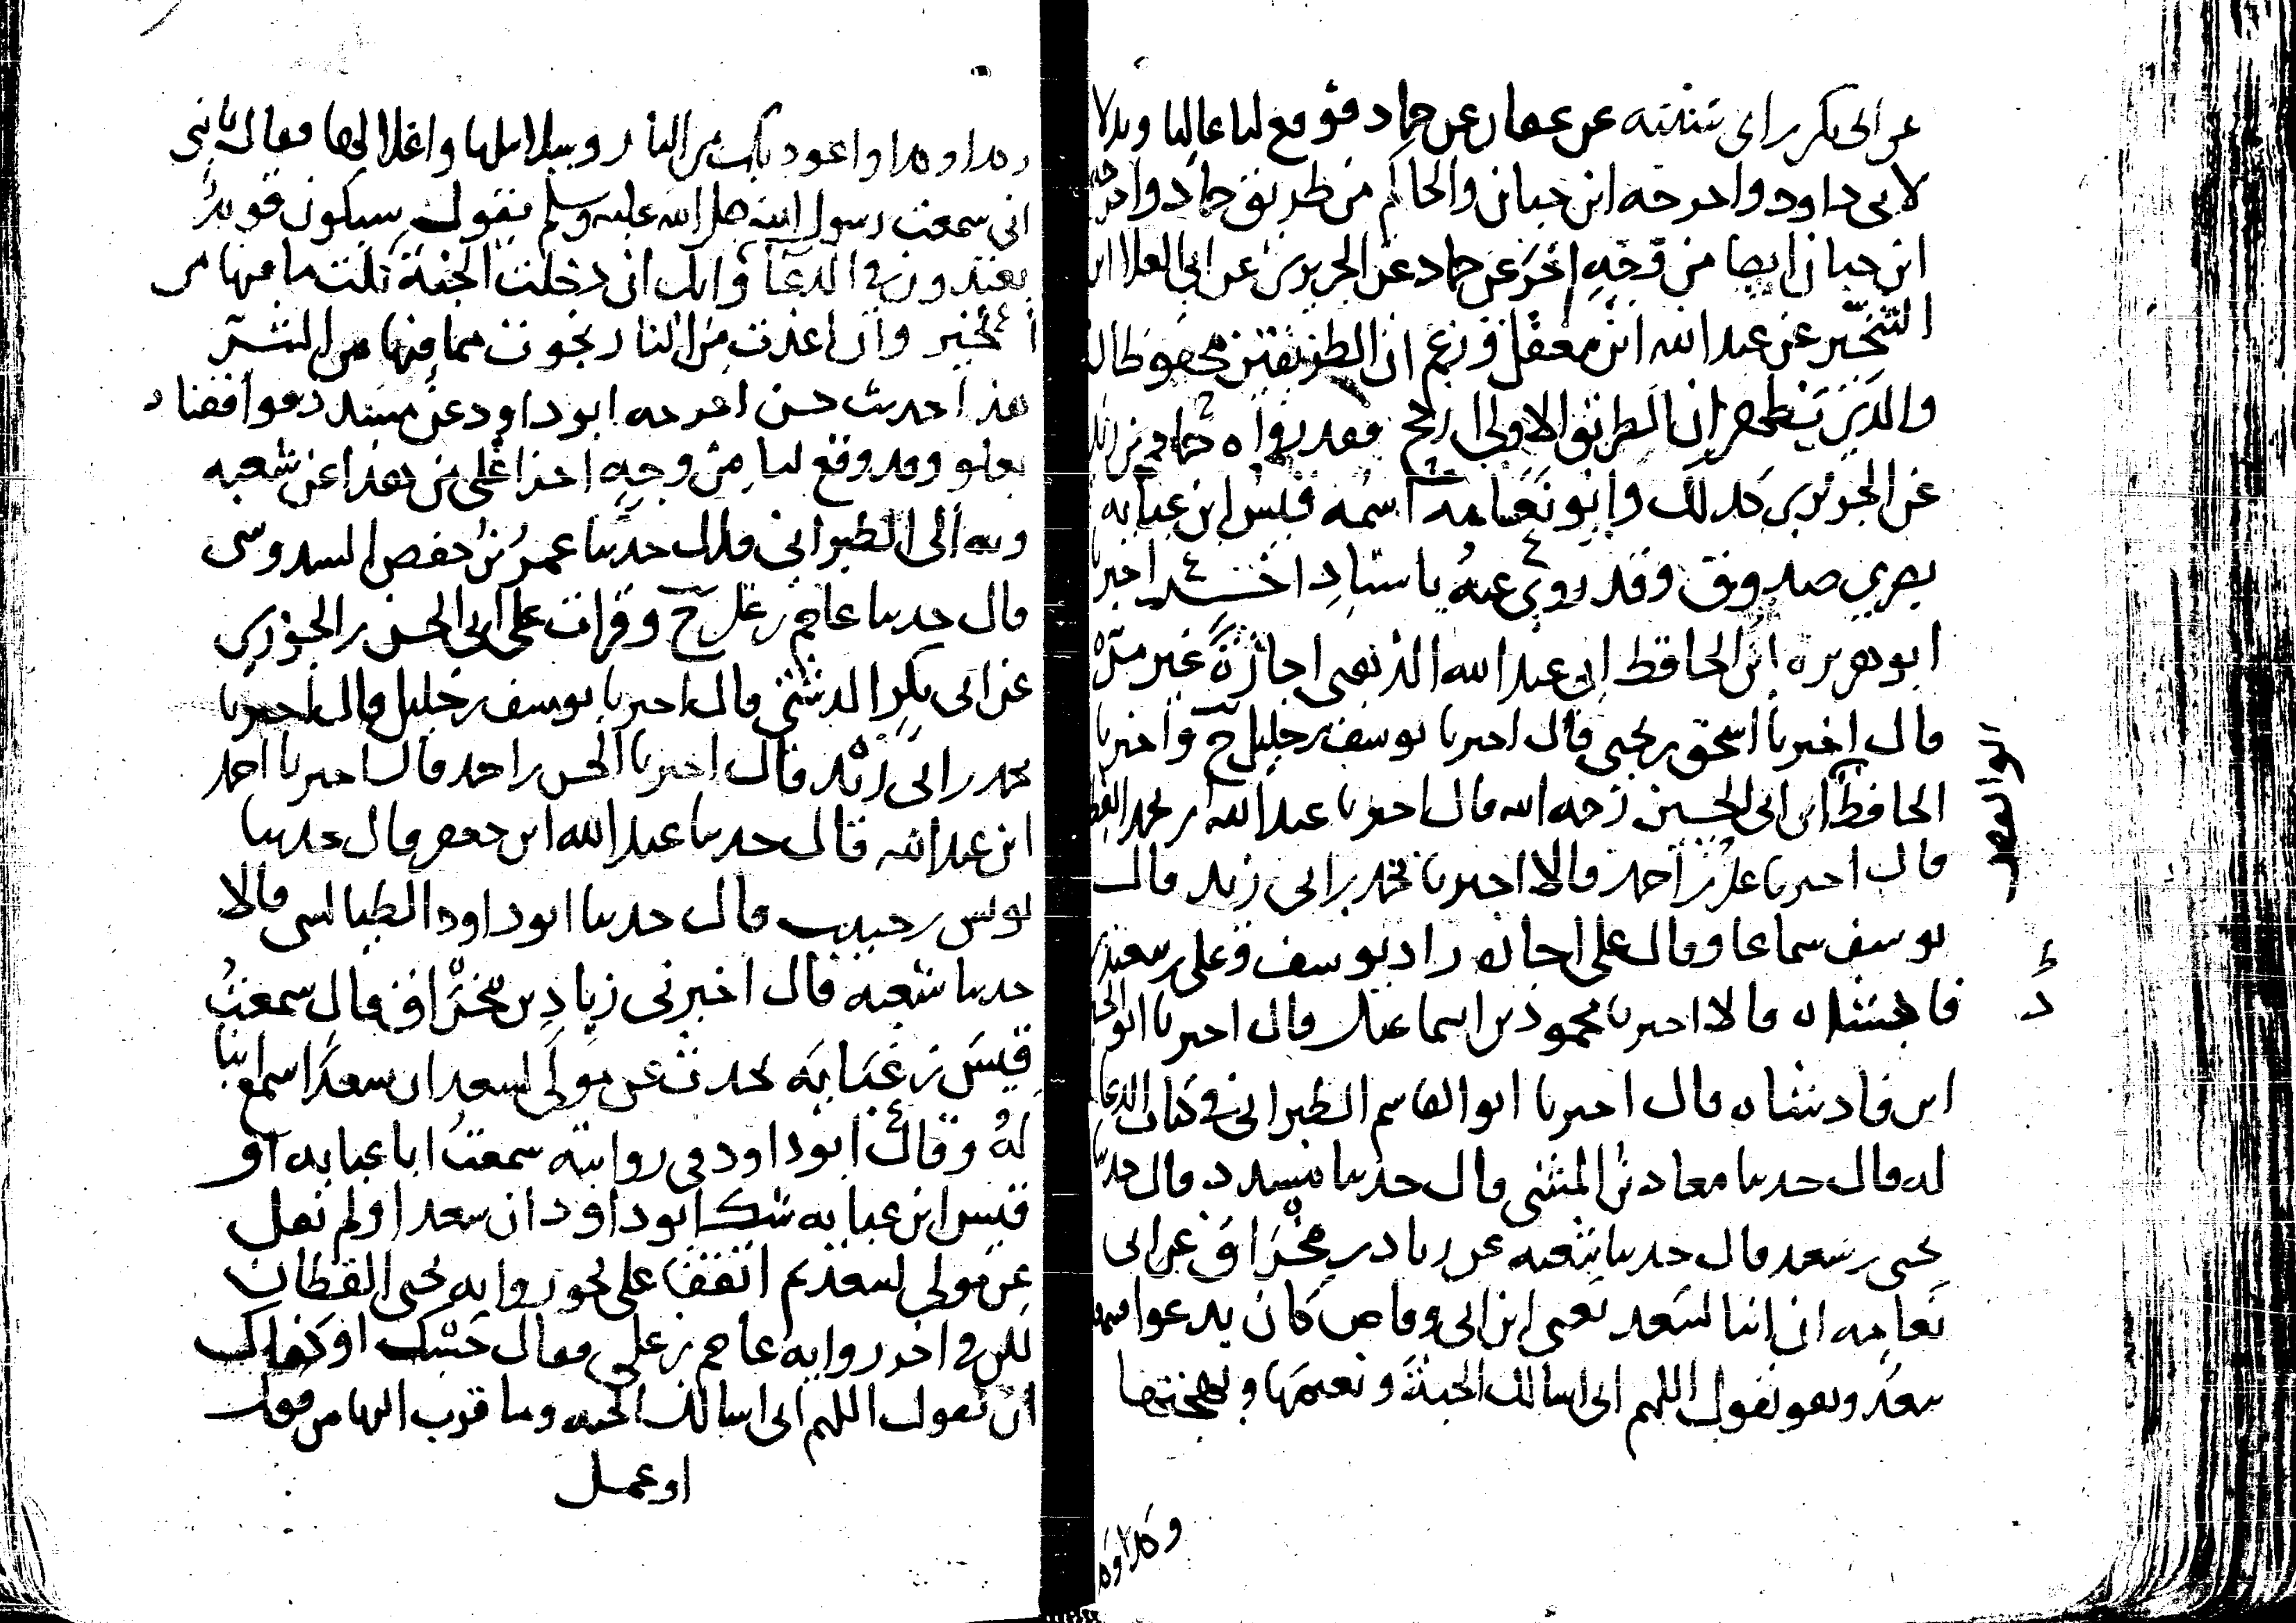 عن ابي بكر بن ابي شيبة عن عفان عن حماد فوقع لنا عاليا وبدلا
لابي داود واخرجه ابن حبان والحاكم من طريق حماد واخرجه
ابن حبان ايضا من وجه اخر عن حماد عن الجريري عن ابي العلا ابن
الشخير عن عبد الله ابن معقل وزعم ان الطريقين محفوظان
والذي يظهر ان الطريق الاولى ارجح فقد رواه حماد بن
عن الجريري كذلك وابو نعامه اسمه قيس ابن عبايه
بصري صدوق وقد روي عنه باسناد اخر اخبرنا
ابو هريره ابن الحافظ ابي عبد الله الذهبي اجازة غير مرة
قال اخبرنا اسحق بن يحيى قال اخبرنا يوسف بن خليل ح واخبرنا
الحافظ ابن ابي الحسين رحمه الله قال اخبرنا عبد الله بن محمد
قال اخبرنا علي بن احمد قالا اخبرنا محمد بن ابي زيد قال
يوسف سماعا وقال علي اجازه زاد يوسف وعلي بن سعيد بن
فاذشاه قالا اخبرنا محمود بن اسماعيل قال اخبرنا ابو الحسين
ابن فادشاه قال اخبرنا ابو القاسم الطبراني في كتاب الدعا
له قال حدثنا معاذ بن المثنى قال حدثنا مسدد قال حدثنا
يحيى بن سعيد قال حدثنا شعبه عن زياد بن مخراق عن ابي
نعامه ان ابنا لسعد يعني ابن ابي وقاص كان يدعوا فسمعه
سعد وهو يقول اللهم اني اسالك الجنة ونعيمها وبهجتها
وكذا وكذا
وكذا وكذا واعوذ بك من النار وسلاسلها واغلالها فقال يا بني
اني سمعت رسول الله صلى الله عليه وسلم يقول سيكون قوم
يعتدون في الدعا وانك ان دخلت الجنة نلت ما فيها من
الخير وان اعذت من النار نجوت مما فيها من الشر
هذا حديث حسن اخرجه ابو داود عن مسدد فوافقناه
بعلو وقد وقع لنا من وجه اخر اعلى من هذا عن شعبه
وبه الى الطبراني قال حدثنا عمر بن حفص السدوسي
قال حدثنا عاصم بن علي ح وقرات على ابي الحسن بن الجوزي
عن ابي بكر الدشتي قال اخبرنا يوسف بن خليل قال اخبرنا
محمد بن ابي زيد قال اخبرنا الحسن بن احمد قال اخبرنا احمد
ابن عبد الله قال حدثنا عبد الله ابن جعفر قال حدثنا
يونس بن حبيب قال حدثنا ابو داود الطيالسي قالا
حدثنا شعبه قال اخبرني زياد بن مخراق قال سمعت
قيس بن عبايه يحدث عن مولى لسعد ان سعدا سمع ابنا
له وقال ابو داود في روايته سمعت ابا عبايه او
قيس ابن عبايه شك ابو داود ان سعدا ولم يقل
عن مولى لسعد ثم اتفقا على نحو روايه يحيى القطان
لكن في اخر روايه عاصم بن علي فقال حسبك او كفاك
ان تقول اللهم اني اسالك الجنه وما قرب اليها من قول
او عمل